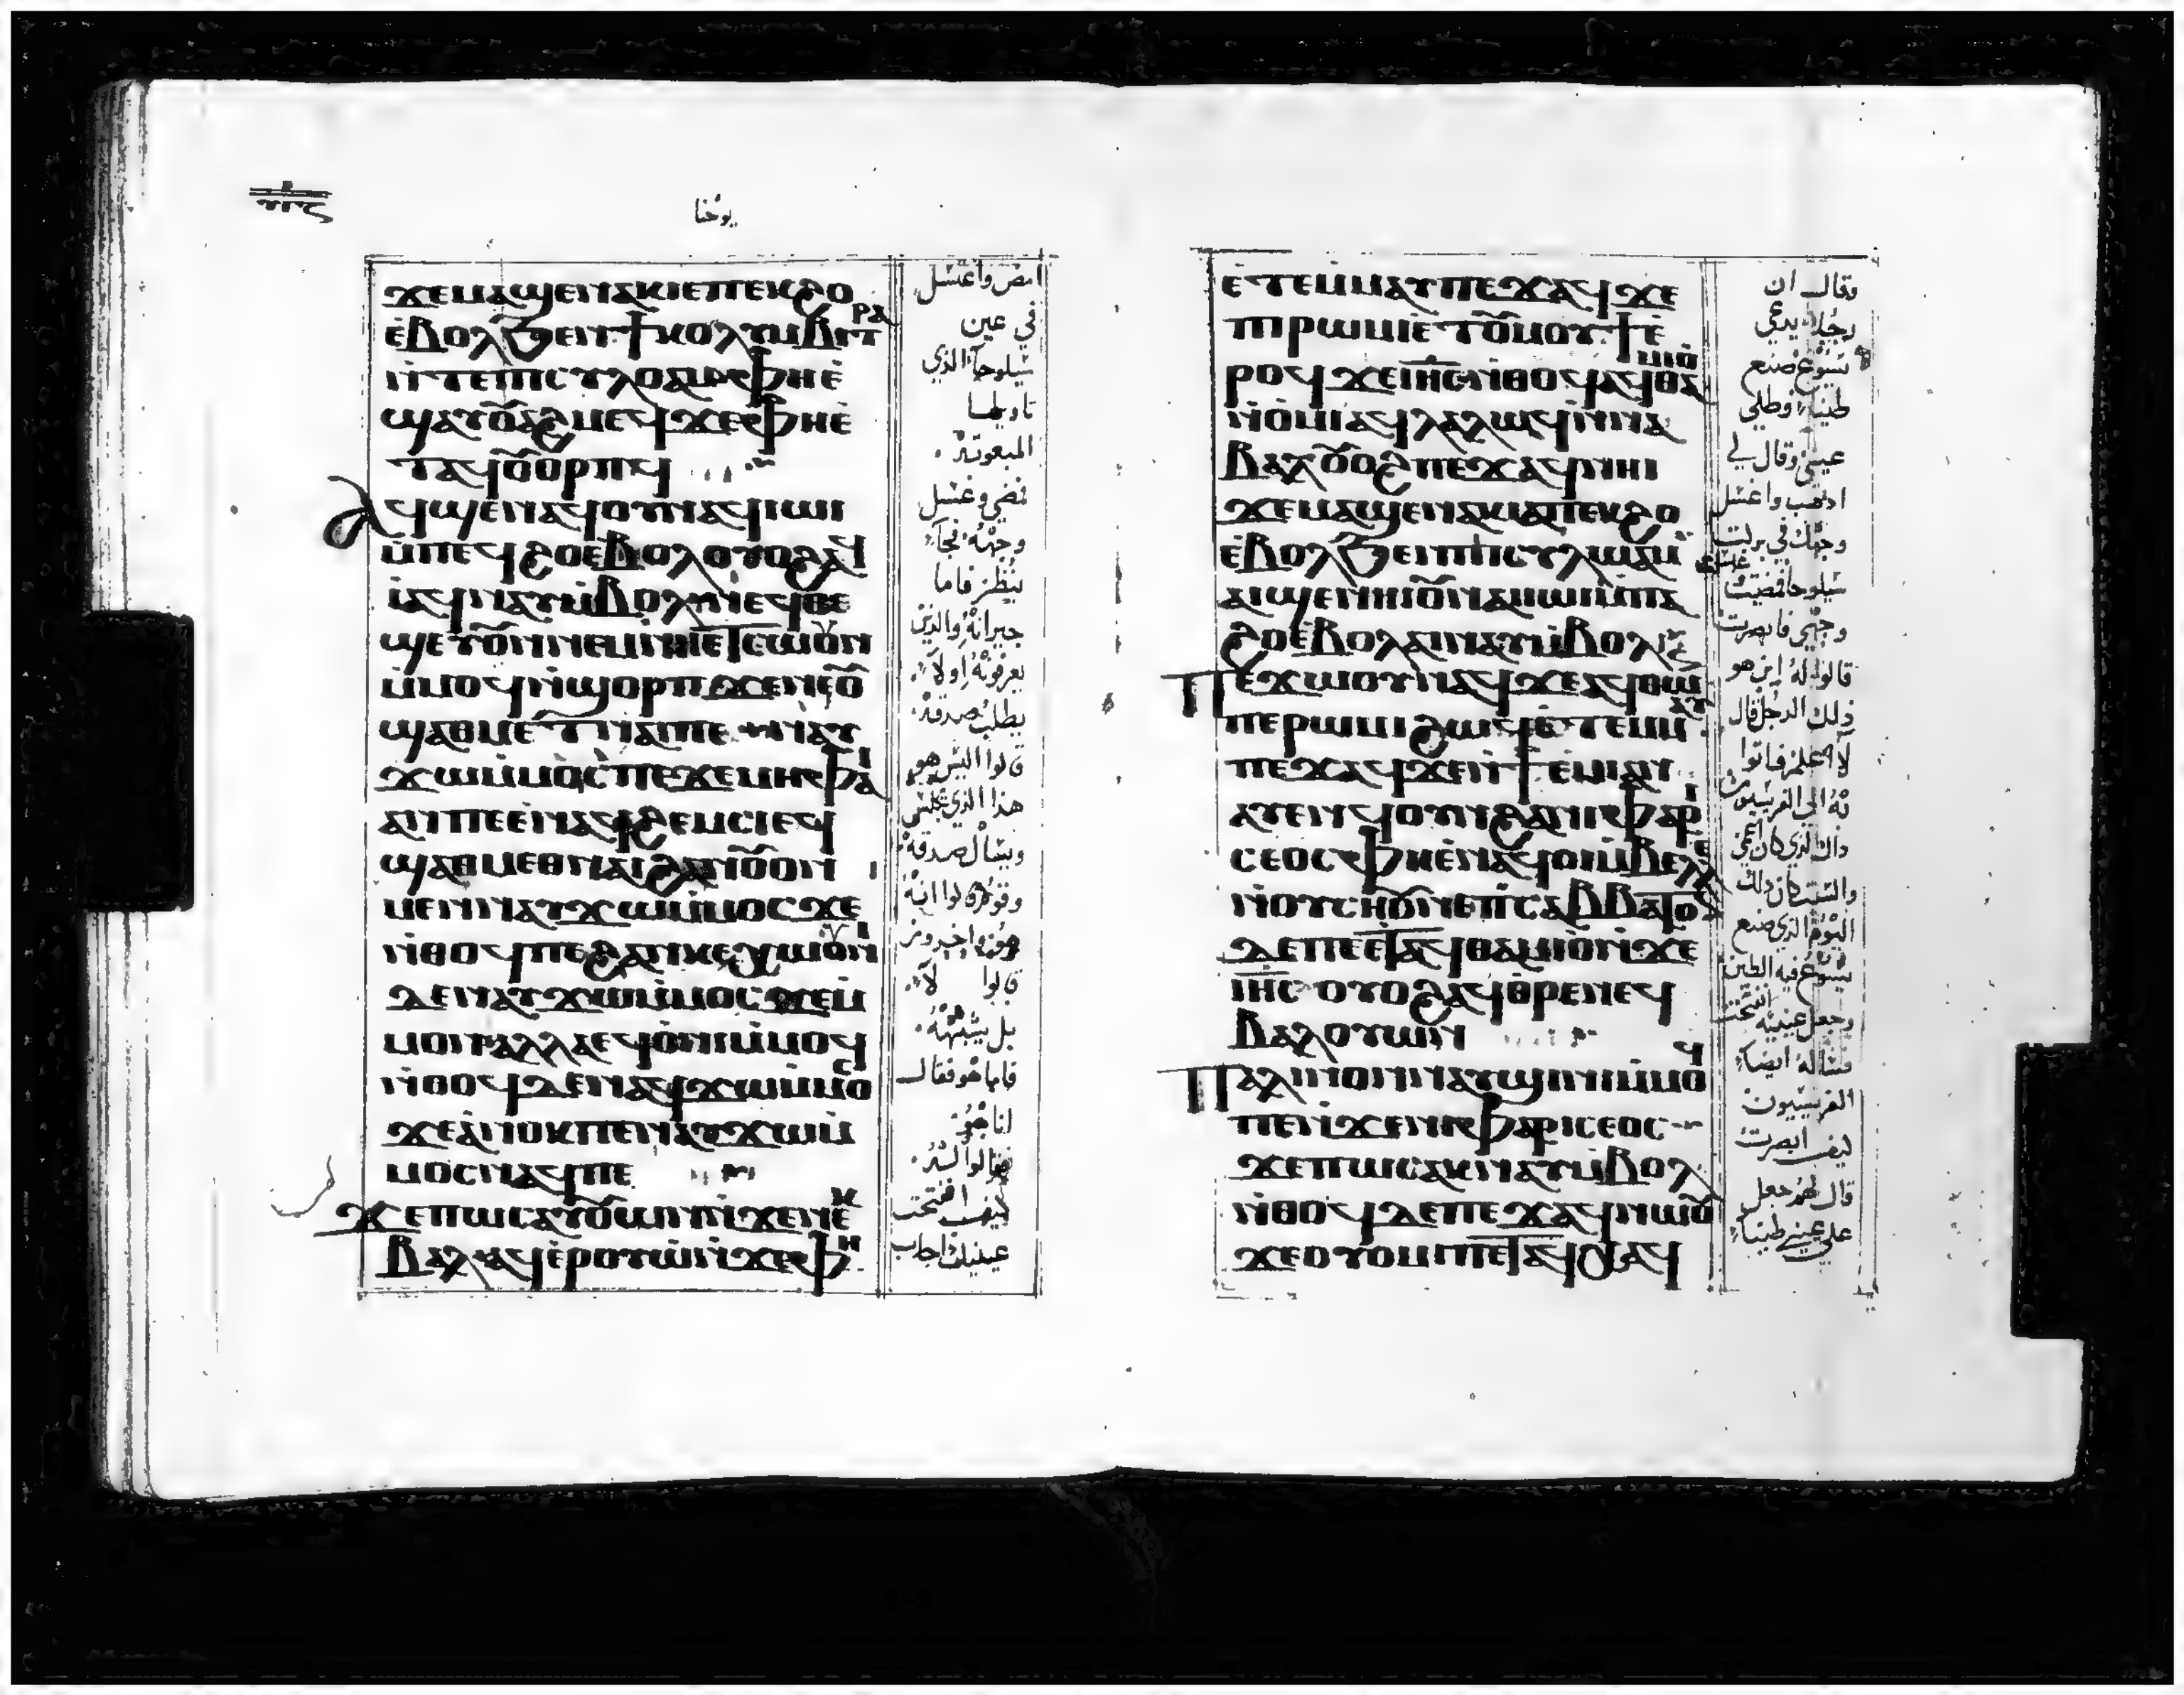 يوحنا
ϫⲉⲙⲁϣⲉⲛⲁⲕⲓⲉⲡⲉⲕϩⲟ
ⲉ̀ⲃⲟⲗϧⲉⲛϯⲕⲟⲗⲩⲙⲃⲏⲧⲣⲁ
ⲛ̀ⲧⲉⲡⲓⲥⲩⲗⲟⲁⲙⲫⲏⲉ̀
ϣⲁⲩⲟ̅ⲁϩⲙⲉϥϫⲉⲫⲏⲉ̀
ⲧⲁϥⲟ̅ⲟⲣⲡϥ
ⲁϥϣⲉⲛⲁϥⲟⲩⲛⲁϥⲓⲱⲓ
ⲙ̀ⲡⲉϥϩⲟⲉⲃⲟⲗⲟⲩⲟϩⲁϥ
ⲓ̀ⲁϥⲛⲁⲩⲙ̀ⲃⲟⲗⲛⲓⲉϥⲑⲉ
ϣⲉⲩⲟ̅ⲛⲛⲉⲙⲛⲏⲉⲧⲥⲱⲟⲩⲛ
ⲙ̀ⲙⲟϥⲛ̀ϣⲟⲣⲡϫⲉⲛⲉⲟ̅
ϣⲁⲑⲙⲉⲑⲛⲁⲓⲡⲉⲛⲁⲩ
ϫⲱⲙ̀ⲙⲟⲥⲡⲉϫⲉⲙⲏⲫⲁⲓ
ⲁⲛⲡⲉⲉⲛⲁϥϩⲉⲙⲥⲓⲉϥ
ϣⲁⲑⲙⲉⲑⲛⲁⲓϩⲁⲛⲟ̅ⲟⲛ
ⲙⲉⲛⲛⲁⲩϫⲱⲙ̀ⲙⲟⲥϫⲉ
ⲛ̀ⲑⲟϥⲡⲉϩⲁⲛⲕⲉⲭⲱⲟⲩⲛⲓ
ⲇⲉⲛⲁⲩϫⲱⲙ̀ⲙⲟⲥϫⲉⲙ̀
ⲙⲟⲛⲁⲗⲗⲁⲉϥⲟ̀ⲛⲓⲙ̀ⲙⲟϥ
ⲛ̀ⲑⲟϥⲇⲉⲛⲁϥϫⲱⲙ̀ⲙⲟⲥ
ϫⲉⲁ̀ⲛⲟⲕⲡⲉⲛⲁⲩϫⲱⲙ̀
ⲙⲟⲥⲛⲁϥⲡⲉ
ϫⲉⲡⲱⲥⲁⲩⲟ̅ⲱⲛⲛ̀ϫⲉⲛⲉⲕ
ⲃⲁⲗⲁϥⲉ̀ⲣⲟⲩⲱⲛ̀ϫⲉⲫⲏ
امض واغتسل
في عين
سيلوحا الذي
تاويلها
المبعوث
فمضي وغسل
وجهه فجآ
ينظر فاما
جيرانه والذين
يعرفونه اولا
يطلب صدقة
قالوا اليس هو
هذا الذي يجلس
ويسال صدقة
وقوم قالوا انه
هو واخرون
قالوا لا
بل يشبهه
فاما هو فقال
انا هو
فقالوا له
كيف انفتحت
عينيك اجاب
ⲉ̀ⲧⲉⲙⲙⲁⲩⲡⲉϫⲁϥϫⲉ
ⲡⲓⲣⲱⲙⲓⲉ̀ⲧⲟ̅ⲙⲟⲩϯⲉ̀
ⲣⲟϥϫⲉⲓⲏⲥⲛ̀ⲑⲟϥⲁϥⲑⲁⲙⲓⲟ̀
ⲛ̀ⲟ̀ⲙⲓⲁϥⲗⲁⲗⲱϥⲛ̀ⲛⲁ
ⲃⲁⲗⲟ̅ⲟϩⲡⲉϫⲁϥⲛⲏⲓ
ϫⲉⲙⲁϣⲉⲛⲁⲕⲓⲁⲡⲉⲕϩⲟ
ⲉ̀ⲃⲟⲗϧⲉⲛⲡⲓⲥⲩⲗⲱⲁⲙ̀
ⲁⲓϣⲉⲛⲏⲓⲟ̅ⲛⲁⲓⲓⲱⲓⲙ̀ⲡⲁ
ϩⲟⲉ̀ⲃⲟⲗⲁⲓⲛⲁⲩⲙ̀ⲃⲟⲗ
ⲡⲉϫⲱⲟⲩⲛⲁϥϫⲉⲁϥⲑⲱ
ⲡⲉⲣⲱⲙⲓϩⲱϥⲉ̀ⲧⲉⲙⲙⲁⲩ
ⲡⲉϫⲁϥϫⲉⲛ̀ϯⲉⲙⲓⲁⲛ
ⲁⲩⲉⲛϥⲟⲩⲛϩⲁⲛⲓⲫⲁⲣⲓ
ⲥⲉⲟⲥⲫⲏⲉ̀ⲛⲁϥⲟⲓⲙ̀ⲃⲉⲗⲗⲉ
ⲛ̀ⲟⲩⲥⲏⲟ̅ⲛⲉⲡⲥⲁⲃⲃⲁⲧⲟⲛ
ⲇⲉⲡⲉⲉ̀ⲧⲁϥⲑⲁⲙⲓⲟⲛ̀ϫⲉ
ⲓⲏⲥⲟⲩⲟϩⲁϥⲑ̀ⲣⲉⲛⲉϥ
ⲃⲁⲗⲟⲩⲱⲛ
ⲡⲁⲗⲓⲛⲟⲛⲛⲁⲩϣⲓⲛⲓⲙ̀ⲙⲟϥ
ⲡⲉⲛ̀ϫⲉⲛⲓⲫⲁⲣⲓⲥⲉⲟⲥ
ϫⲉⲡⲱⲥⲁⲕⲛⲁⲩⲙ̀ⲃⲟⲗ
ⲛ̀ⲑⲟϥⲇⲉⲡⲉϫⲁϥⲛⲱⲟ̅
ϫⲉⲟⲩⲟⲙⲓⲡⲉⲧⲁϥⲭⲁϥ
وقال ان
رجلا يدعي
يسوع صنع
طينا وطلي
عيني وقال لي
اذهب واغسل
وجهك في بركت
سيلوحا فمضيت
وجهي فابصرت
قالوا له اين هو
ذلك الرجل قال
لا اعلم فاتوا
به الي الفريسيون
ذاك الذي كان اعمي
والسبت كان ذلك
اليوم الذي صنع
يسوع فيه الطين
وجعل عينيه
فساله ايضا
الفريسيون
كيف ابصرت
قال لهم جعل
علي عيني طينا